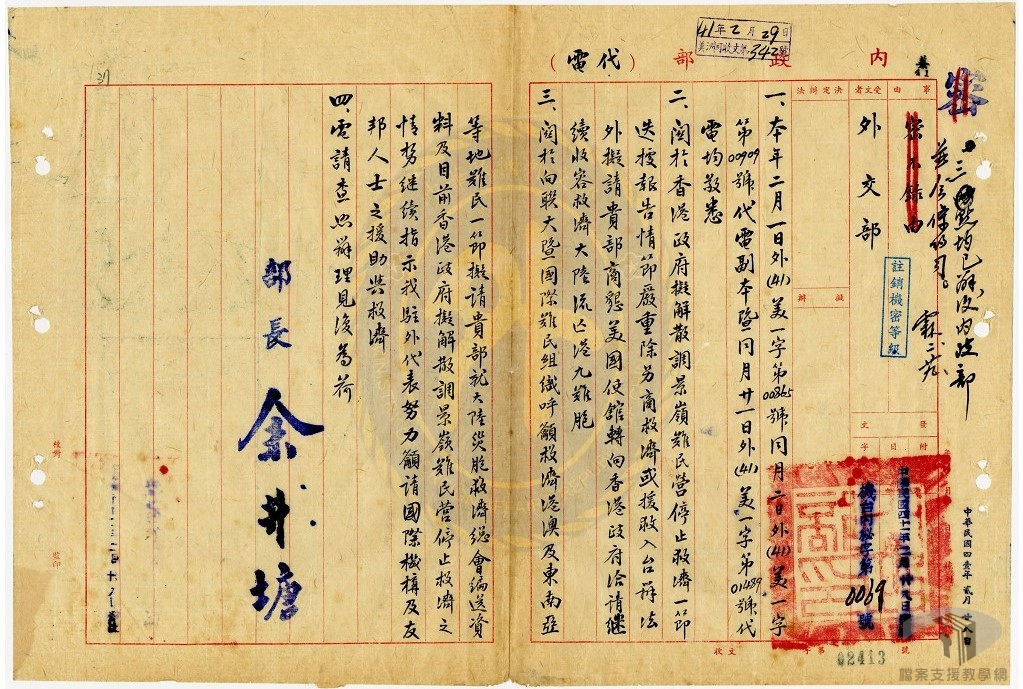 41年2月29日
美洲司收文第342號
內政部（代電）
密
三四點均已辦復內政部
事由
密不錄由
受文者
外交部
決定辦法
擬辦
註銷機密等級
發文
附
日
字
中華民國四壹年貳月廿八日
機台內秘字第0069號
一、本年二月一日外(41)美一字第00365號同月二日外(41)美一字
第00909號代電副本暨同月廿一日外(41)美一字第01489號代
電均敬悉
二、關於香港政府擬解散調景嶺難民營停止救濟一節
迭據報告情節嚴重除另商救濟或援救入台辦法
外擬請貴部商懇美國使館轉向香港政府洽請繼
續收容救濟大陸流亡港九難胞
三、關於向聯大暨國際難民組織呼籲救濟港澳及東南亞
等地難民一節擬請貴部就大陸災胞救濟總會編送資
料及目前香港政府擬解散調景嶺難民營停止救濟之
情勢繼續指示我駐外代表努力籲請國際機構及友
邦人士之援助與救濟
四、電請查照辦理見復為荷
部長余井塘
收文
字第
號
02413
校對
監印
31
檔案支援教學網